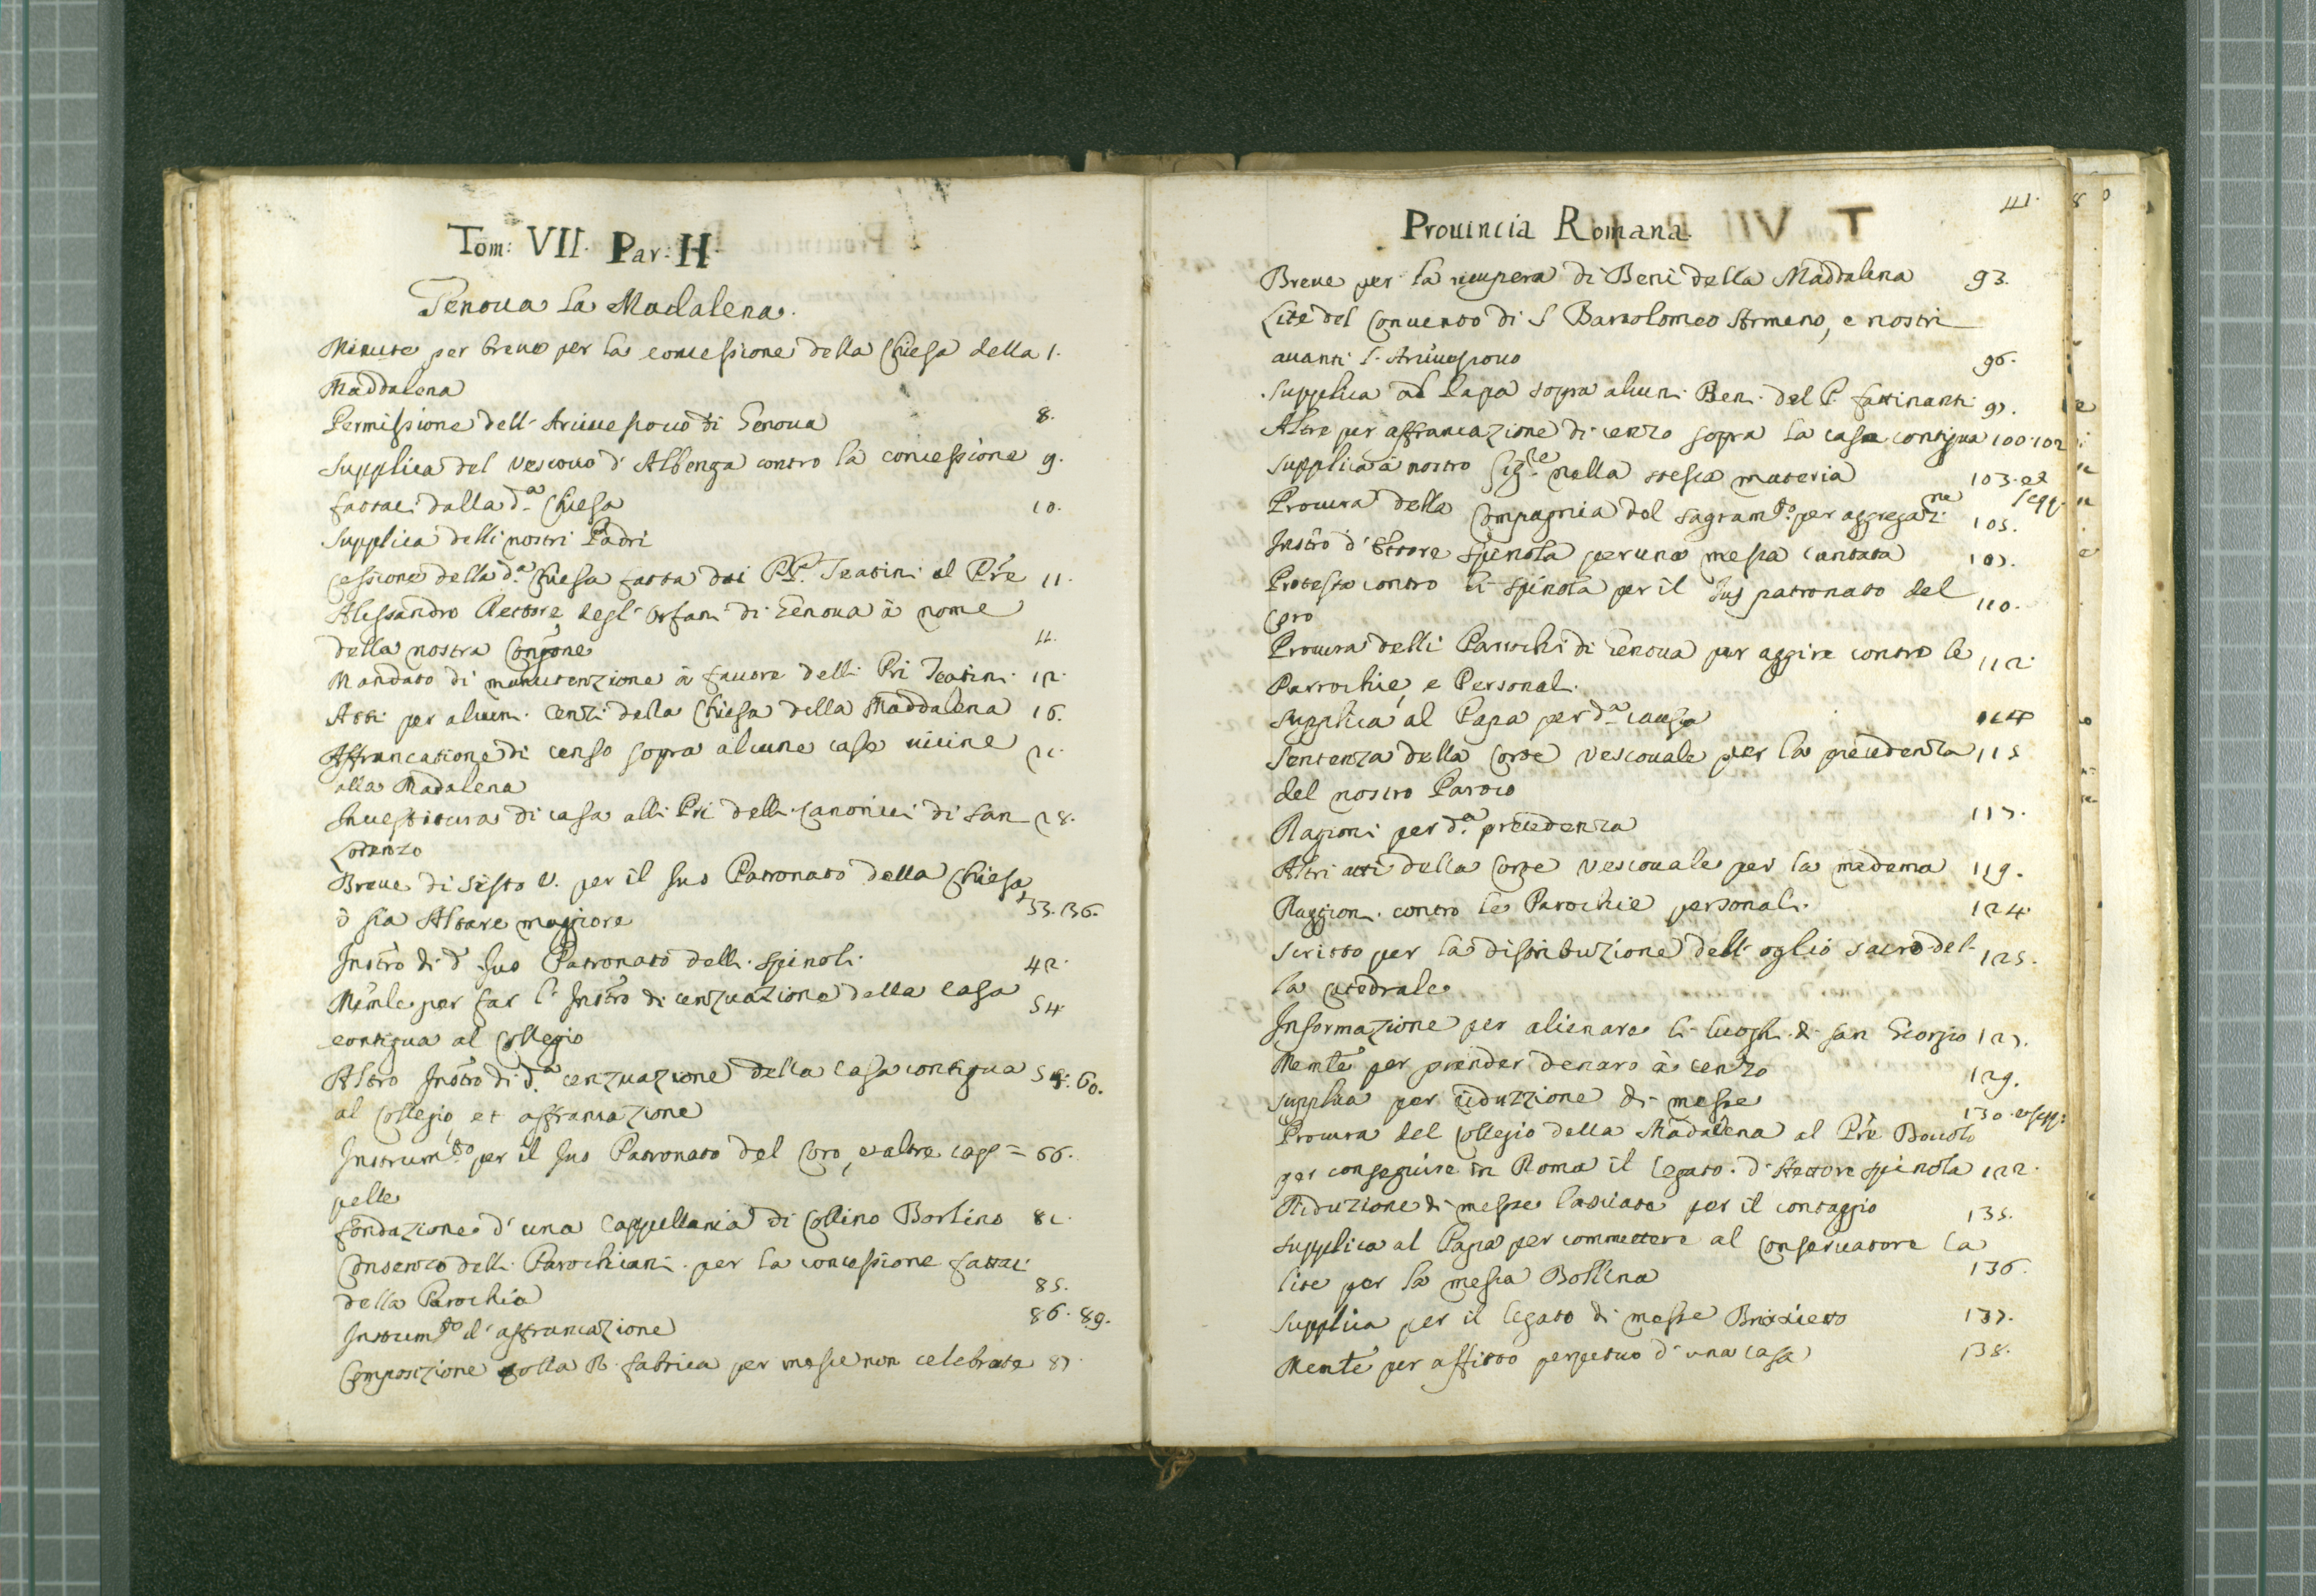 Tom: VII. Par: H
Genoua la Madalena.
Minute per breue per la concessione della Chiesa della 1.
Maddalena
Permissione dell' Arciuescouo di Genoua 8.
Supplica del Vescouo d' Albenga contro la concessione 9.
fattaci dalla d.a Chiesa 10.
Supplica delli nostri Padri
Cessione della d.a Chiesa fatta dai PP. Teatini al Pre 11.
Alessandro Rettore degl' Orfani di Genoua à nome
della nostra Congone 11.
Mandato di manutenzione à fauore delli Pri Teatini 12.
Atti per alcuni Cenzi della Chiesa della Maddalena 16.
Affrancatione di censo sopra alcune case uicine 21.
alla Madalena
Inuestitura di casa alli Pri delli Canonici di San 28.
Lorenzo
Breue di Sisto V. per il Jus Patronato della Chiesa
ò sia Altare maggiore 33. 36.
Instro di d.o Jus Patronato delli Spinoli 42.
Memle per far l' Instro di cenzuazione della casa 54
contigua al Collegio
Altro Instro di d.a cenzuazione della casa contigua 60.
al Collegio, et affrancazione
Instrum.to per il Jus Patronato del Coro, et altre cap= 66.
pelle
fondazione d' una Cappellania di Collino Borlino 81.
Consenso delli Parochiani per la concessione fattaci
della Parochia 85.
Instrum.to d' affrancazione 86. 89.
Composizione colla R. fabrica per messe non celebrate 87.
41.
Prouincia Romana.
Breue per la recupera di Beni della Maddalena 93.
Lite del Conuento di S Bartolomeo Armeno, e nostri
auanti l' Arciuescouo 96.
Supplica al Papa sopra alcuni Beni del P. fattinanti 97.
Altre per affrancazione di cenzo sopra la casa contigua 100. 102
Supplica à nostro Sig.re nella stessa materia 103. et seqq.
Procura della Compagnia del Sagram.to per aggregaz.ne 105.
Instro d' Ettore Spinola per una messa cantata 107.
Protesta contro li Spinola per il Jus patronato del
Coro 110.
Procura delli Parochi di Genoua per aggire contro le 112.
Parrochie, e Personali
Supplica al Papa per d.a causa 114
Sentenza della Corte Vescouale per la precedenza 115
del nostro Paroco
Ragioni per d.a precedenza 117.
Altri atti della Corte Vescouale per la medema 119.
Raggioni contro le Parochie personali. 124.
Scritto per la distribuzione dell' oglio sacro del- 125.
la Catedrale
Informazione per alienare li luoghi di San Giorgio 127.
Memle per prender denaro à cenzo 129.
Supplica per riduzzione di messe 130. et seqq:
Procura del Collegio della Madalena al Pre Bouolo
per conseguire in Roma il legato d' Hettore Spinola 122.
Riduzione di messe lasciate per il contaggio 135.
Supplica al Papa per commettere al Conseruatore la
lite per la messa Bollina 136.
Supplica per il legato di messe 137.
Memle per affitto perpetuo d' una casa 138.